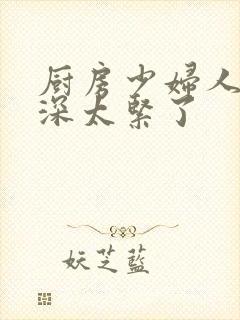 厨房少婦人
深太緊了
妖芝藍